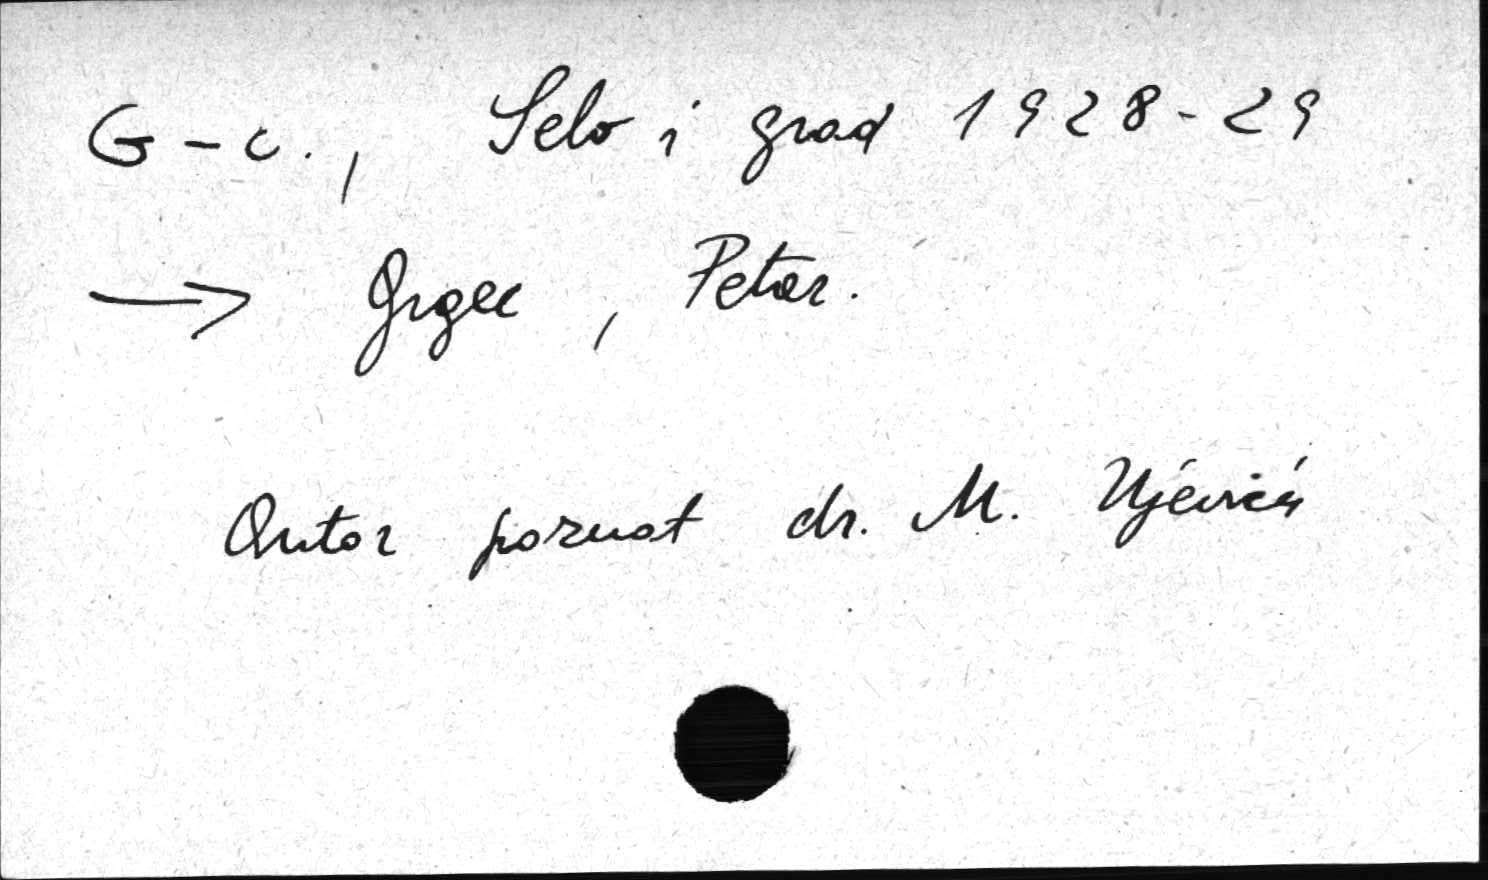 G-c., Selo i grad 1928-29
→ Grgec, Petar.
Autor poznat dr. M. Ujeviću